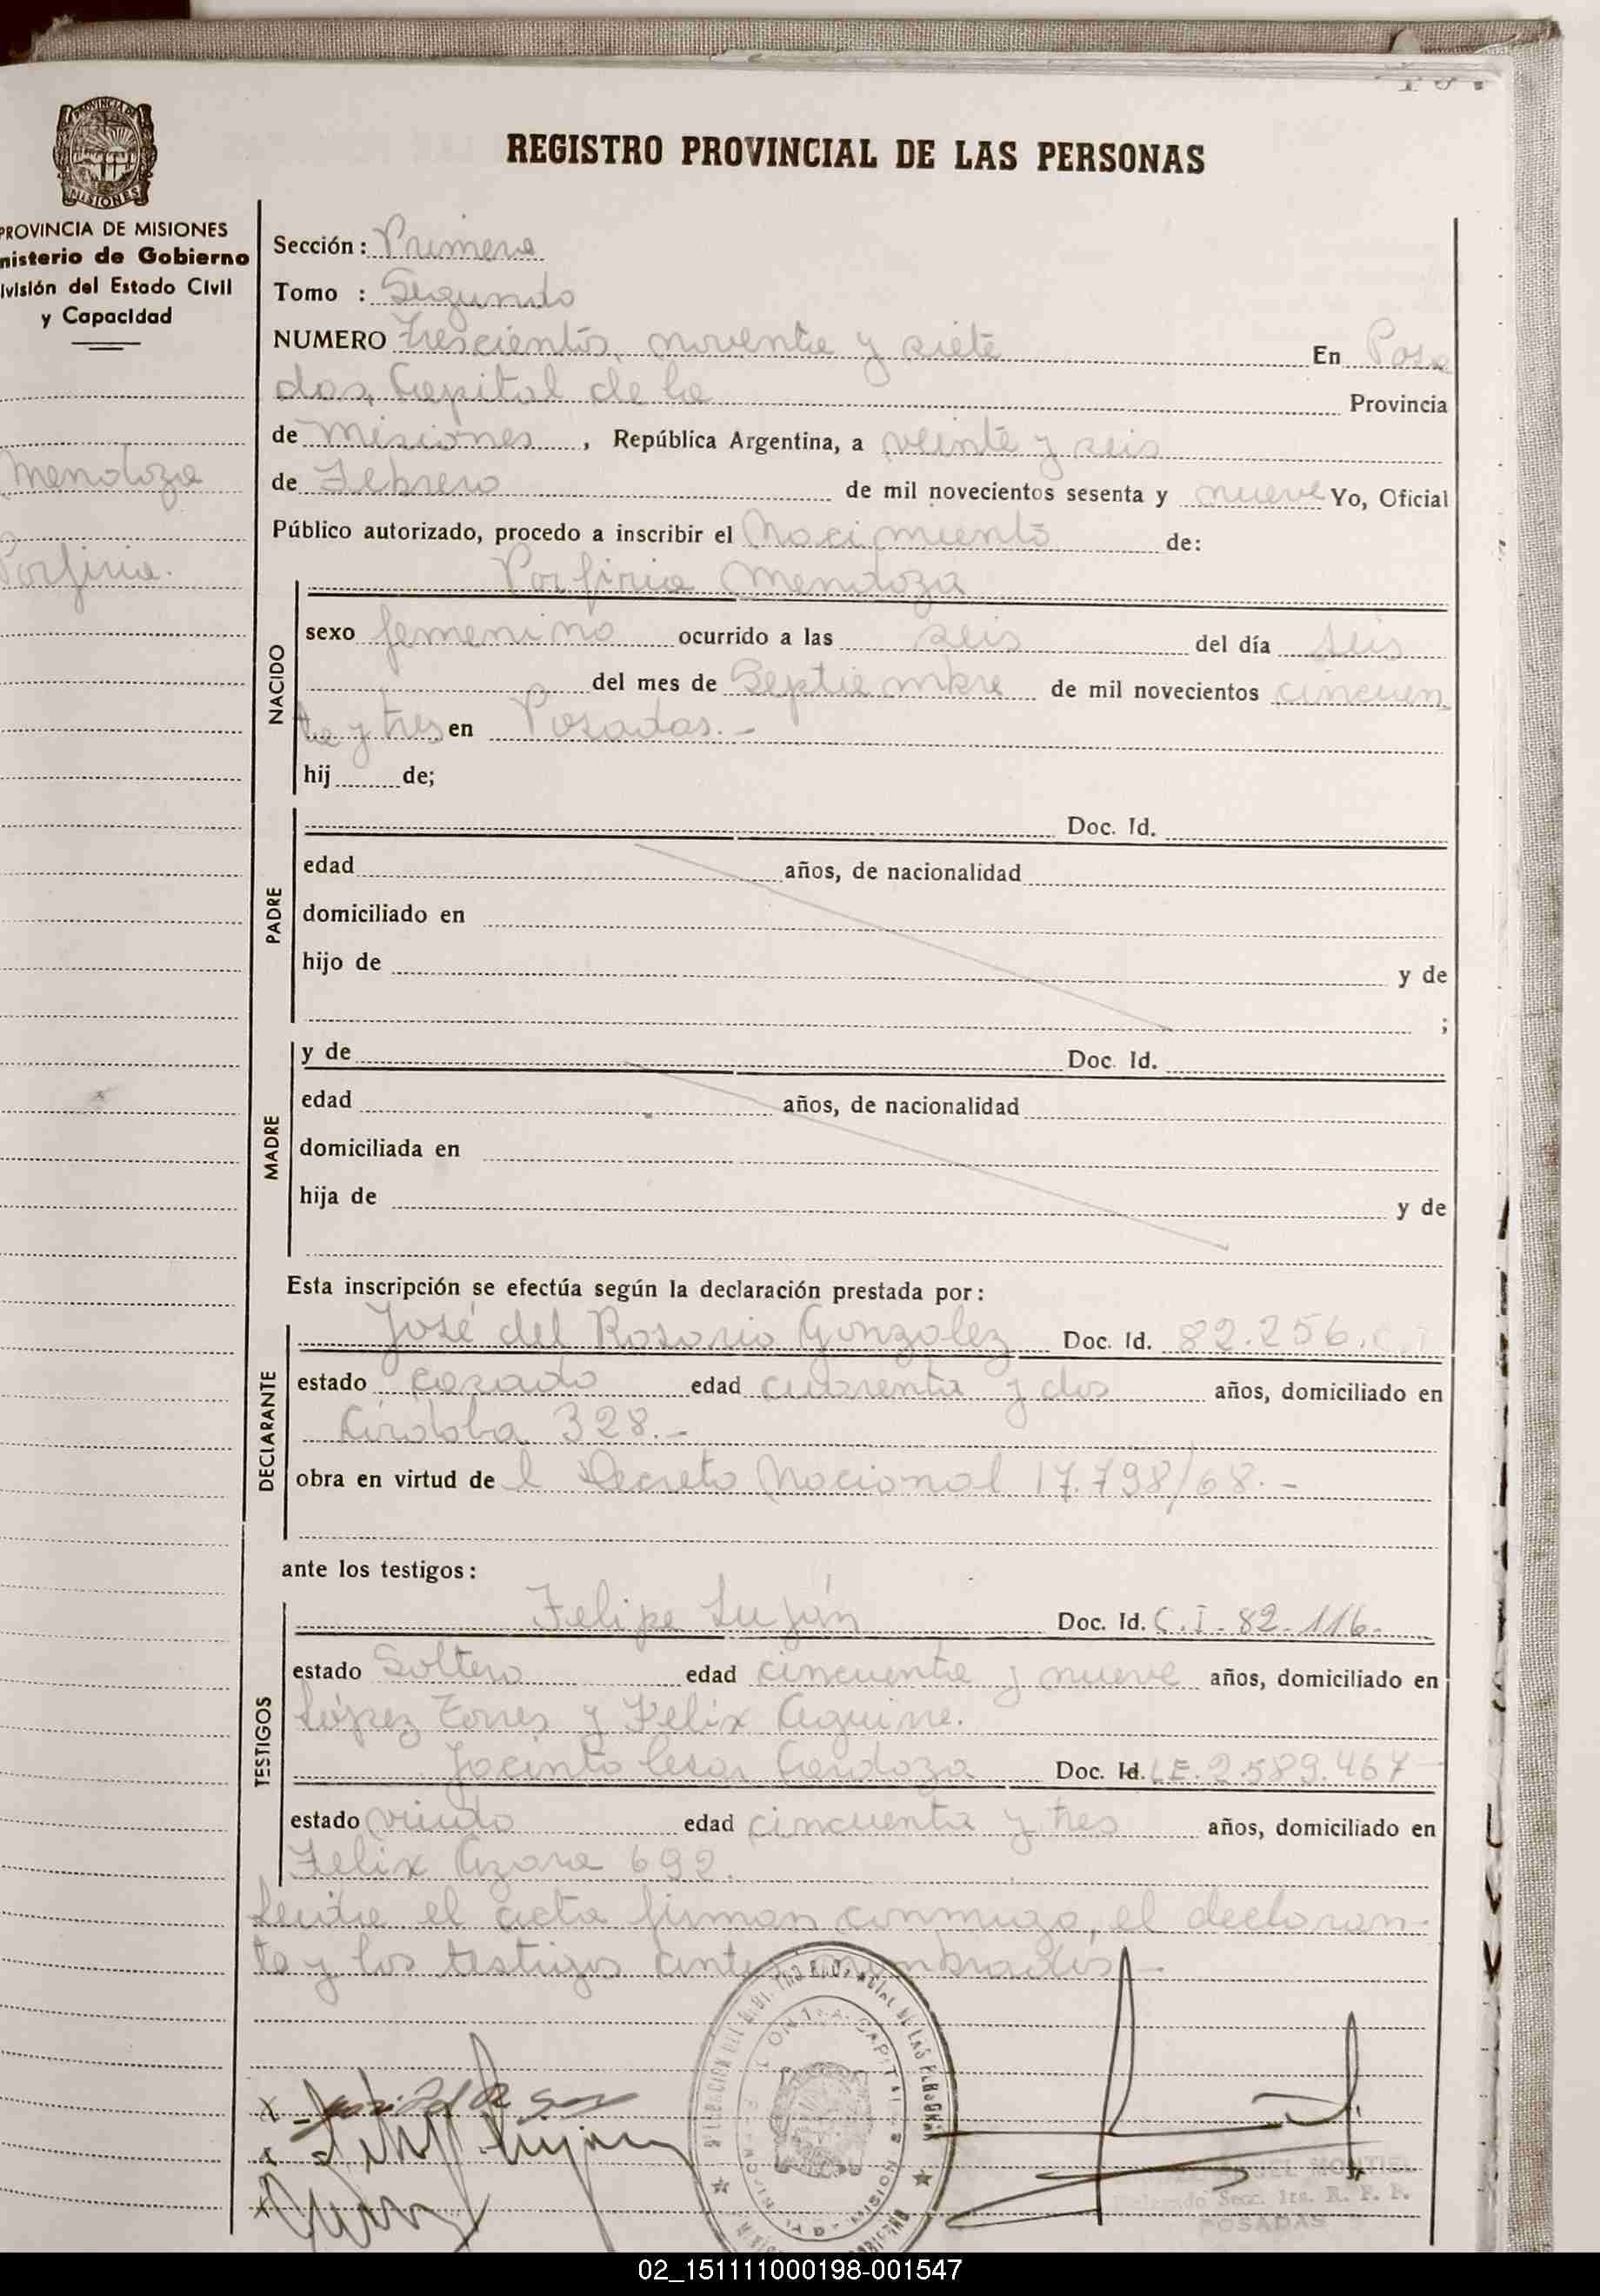 REGISTRO PROVINCIAL DE LAS PERSONAS
PROVINCIA DE MISIONES
PROVINCIA DE MISIONES
nisterio de Gobierno
ivisión del Estado Civil
y Capacidad
Mendoza
Porfiria.
Sección: Primera
Tomo : Segundo
NUMERO Trescientos, noventa y siete En Posa
das, Capital de la Provincia
de Misiones, República Argentina, a veinte y seis
de Febrero de mil novecientos sesenta y nueve Yo, Oficial
Público autorizado, procedo a inscribir el Nacimiento de:
NACIDO
Porfiria Mendoza
sexo femenino ocurrido a las seis del día seis
del mes de Septiembre de mil novecientos cincuen
ta y tres en Posadas.-
hij de;
PADRE
Doc. Id.
edad años, de nacionalidad
domiciliado en
hijo de y de
;
MADRE
y de Doc. Id.
edad años, de nacionalidad
domiciliada en
hija de y de
Esta inscripción se efectúa según la declaración prestada por:
DECLARANTE
José del Rosario Gonzalez Doc. Id. 82.256.C.I
estado casado edad cuarenta y dos años, domiciliado en
Córdoba 328.-
obra en virtud de l Decreto Nacional 17.798/68.-
ante los testigos:
TESTIGOS
Felipe Luján Doc. Id. C.I. 82.116.
estado Soltero edad cincuenta y nueve años, domiciliado en
López Torres y Felix Aguirre.
Jacinto Cesar Cardozo Doc. Id. L.E. 2.589.467
estado viudo edad cincuenta y tres años, domiciliado en
Felix Azara 692.
Leída el acta firman conmigo, el declaran-
te y los testigos antes nombrados.-
MONTIEL
Secc. 1ra. R. P. P.
POSADAS
02_151111000198-001547